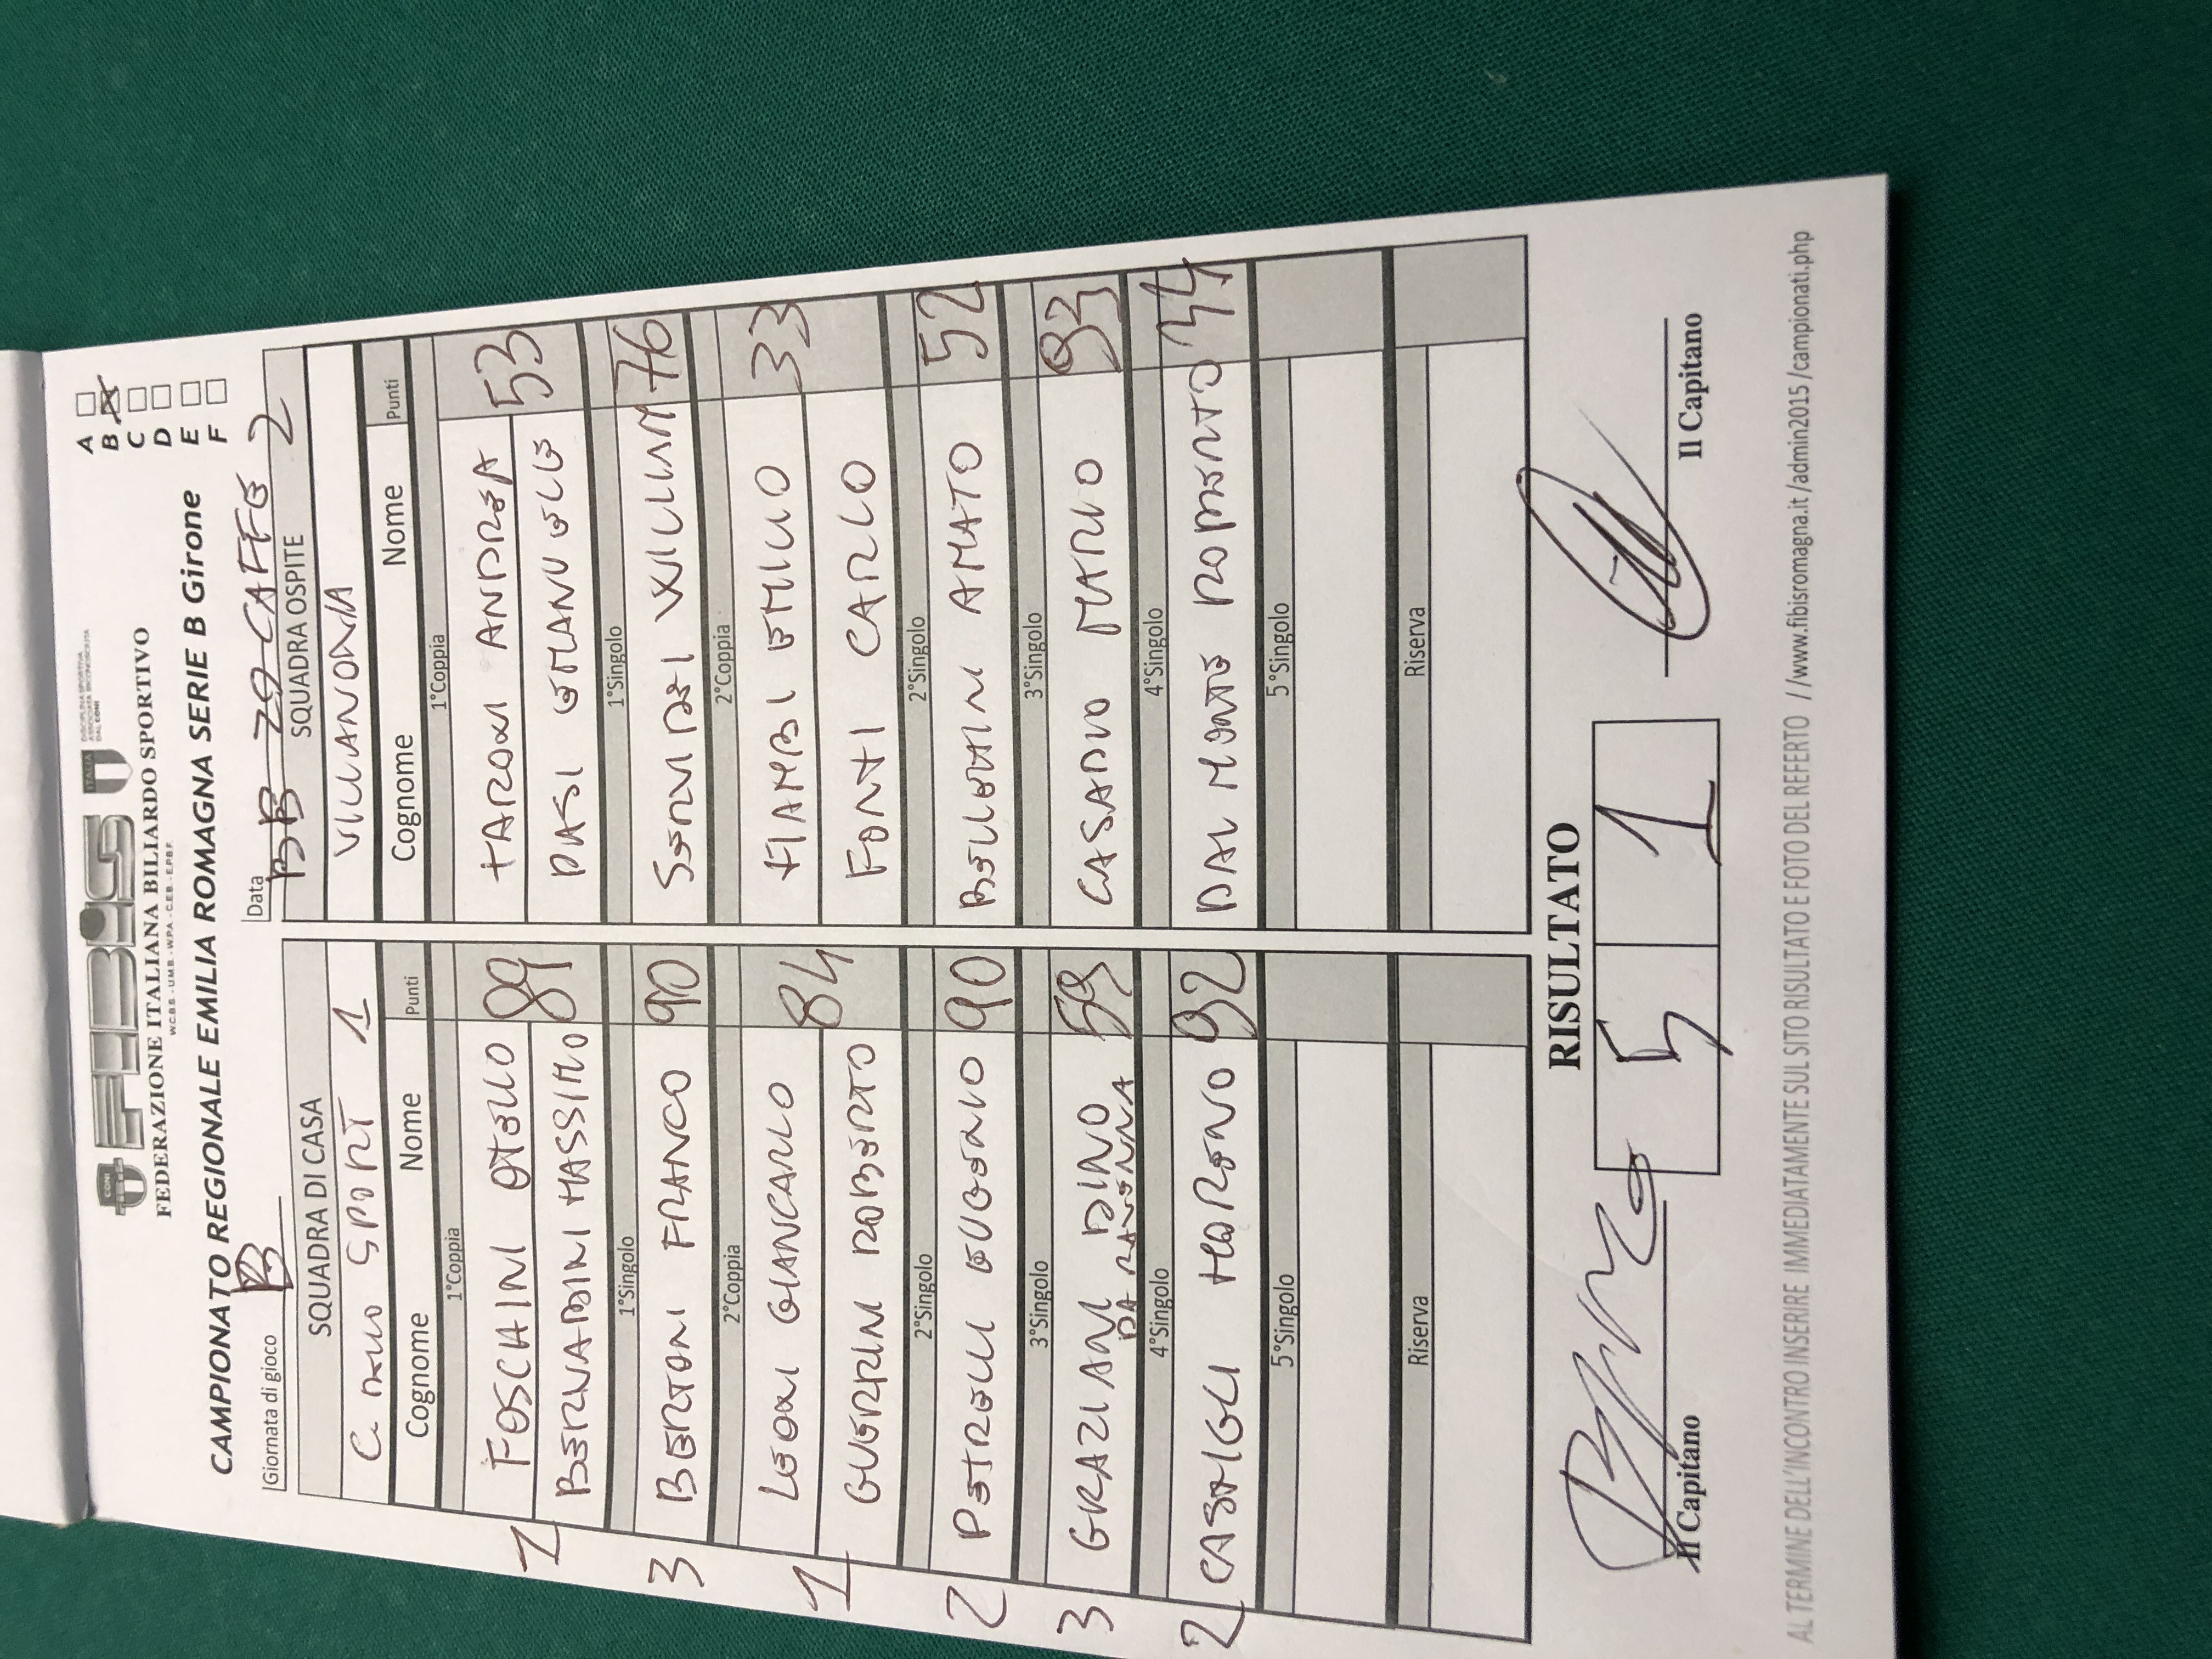 FEBIS
CONI
ITALIA
FEDERAZIONE ITALIANA BILIARDO SPORTIVO
W.C.B.S. - U.M.B. - W.P.A. - C.E.B. - E.P.B.F.
DISCIPLINA SPORTIVA
ASSOCIATA RICONOSCIUTA
DAL CONI
CAMPIONATO REGIONALE EMILIA ROMAGNA SERIE B Girone
A
B X
C
D
E
F
Giornata di gioco B
Data
BB ZO CAFFE 2
SQUADRA DI CASA
SQUADRA OSPITE
SPORT 1
VILLANOVIA
Cognome Nome Punti
Cognome Nome Punti
1°Coppia
1°Coppia
FOSCHINI OTELLO 89
TARONI ANDREA 53
BERNABINI MASSIMO
PASI EMANUELE
1°Singolo
1°Singolo
3 BERTONI FRANCO 90
SERVIDEI WILLIAM 76
2°Coppia
2°Coppia
1 LEONI GIANCARLO 84
FIAMBI EMILIO 33
GUERRINI ROBERTO
FONTI CARLO
2°Singolo
2°Singolo
2 PETRELLI EUGENIO 90
BELLETTINI AMATO 52
3°Singolo
3°Singolo
3 GRAZIANI DINO
CASADIO MARIO 93
DA RAVENNA
4°Singolo
4°Singolo
2 CASTIGLI MORENO 92
DAL MONTE ROBERTO 44
5°Singolo
5°Singolo
Riserva
Riserva
RISULTATO
5 1
Il Capitano
Il Capitano
AL TERMINE DELL'INCONTRO INSERIRE IMMEDIATAMENTE SUL SITO RISULTATO E FOTO DEL REFERTO //www.fibisromagna.it/admin2015/campionati.php